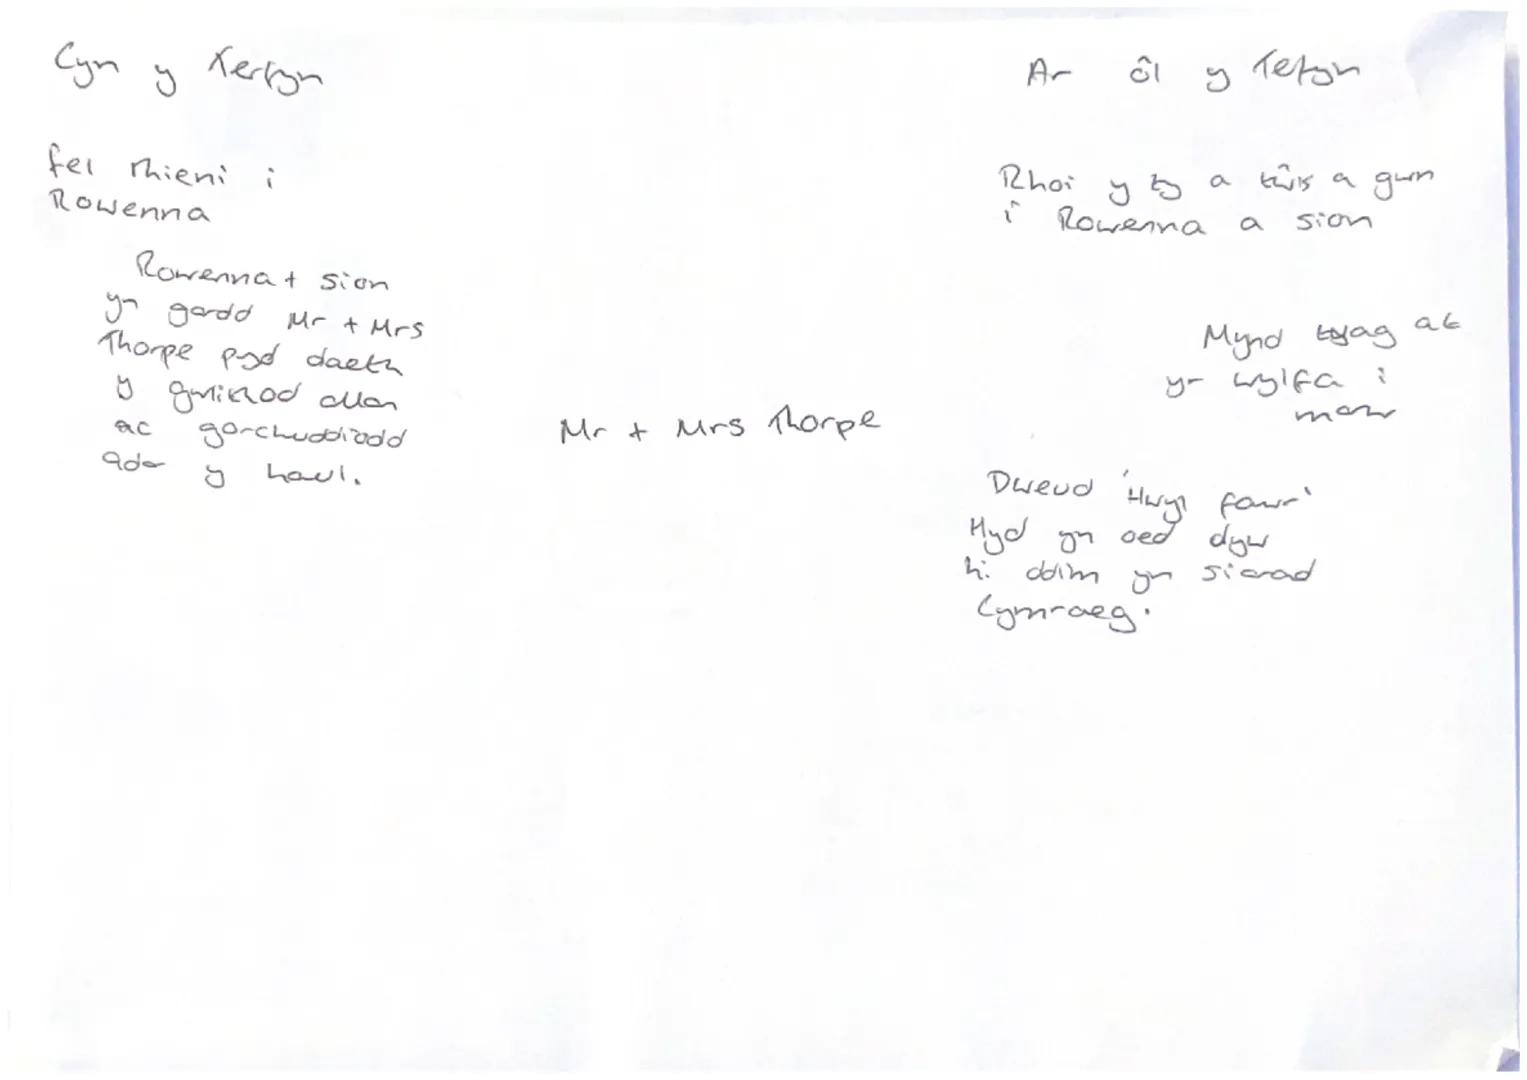 Cyn y Terfyn
fel rhieni i
Rowenna
Rowenna + Sion
yn gardd Mr + Mrs
Thorpe pryd daeth
y gwirod allan
ac gorchuddiodd
y haul.
Mr + Mrs Thorpe
Ar ôl y Tefyn
Rhoi y ty a a gwn
i Rowenna a sion
Mynd at
yr wylfa i
marw
Dweud 'Hwyl fawr'
Hyd yn oed dyw
hi ddim yn siarad
Cymraeg.